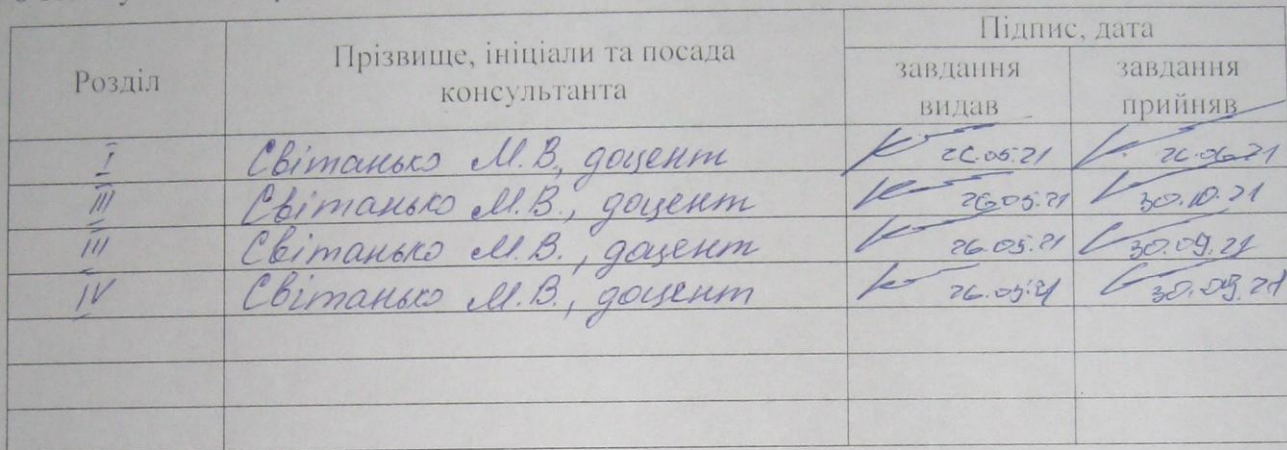 Підпис, дата
Розділ Прізвище, ініціали та посада консультанта завдання видав завдання прийняв
I Світанько М.В., доцент 26.05.21 26.06.21
III Світанько М.В., доцент 26.05.21 30.10.21
III Світанько М.В., доцент 26.05.21 30.09.21
IV Світанько М.В., доцент 26.05.21 30.09.21